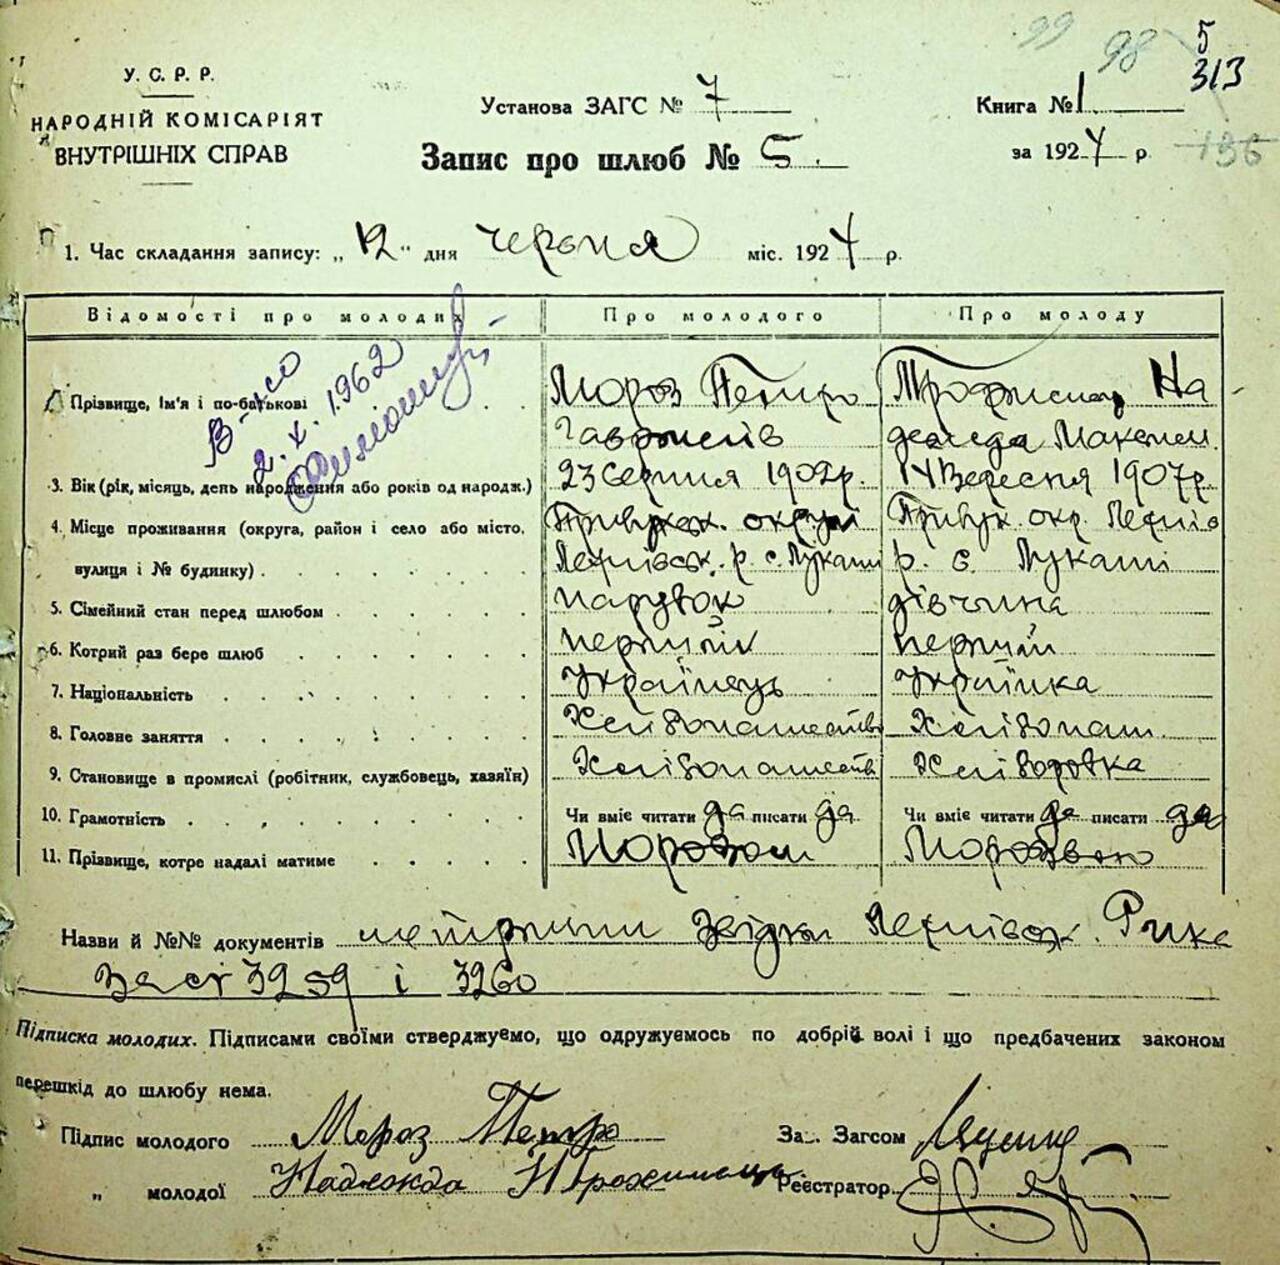 99 98 5
313
У. С. Р. Р.
НАРОДНІЙ КОМІСАРІЯТ
ВНУТРІШНІХ СПРАВ
Установа ЗАГС № 7
Запис про шлюб № 5.
Книга № 1
за 1924 р.
136
1. Час складання запису: „12" дня червня міс. 1924 р.
Відомості про молодих Про молодого Про молоду
2. X. 1962
Прізвище, ім'я і по-батькові Мороз Петро На
Гаврилів дежда Максим.
3. Вік (рік, місяць, день народження або років од народж.) 23 Серпня 1902р. 14 Вересня 1907р.
4. Місце проживання (округа, район і село або місто, округи окр.
вулиця і № будинку) р. с. Лукаші р. с. Лукаші
5. Сімейний стан перед шлюбом парубок дівчина
6. Котрий раз бере шлюб перший перший
7. Національність Українець Українка
8. Головне заняття Хлібопашество Хлібопаш.
9. Становище в промислі (робітник, службовець, хазяїн) Хлібопашеств
10. Грамотність Чи вміє читати да писати да Чи вміє читати да писати да
11. Прізвище, котре надалі матиме Морозом Морозвою
Назви й №№ документів Рика
за ст 3259 і 3260
Підписка молодих. Підписами своїми стверджуємо, що одружуємось по добрій волі і що предбачених законом
перешкід до шлюбу нема.
Підпис молодого Мороз Петро За.. Загсом
„ молодої Надежда Реєстратор